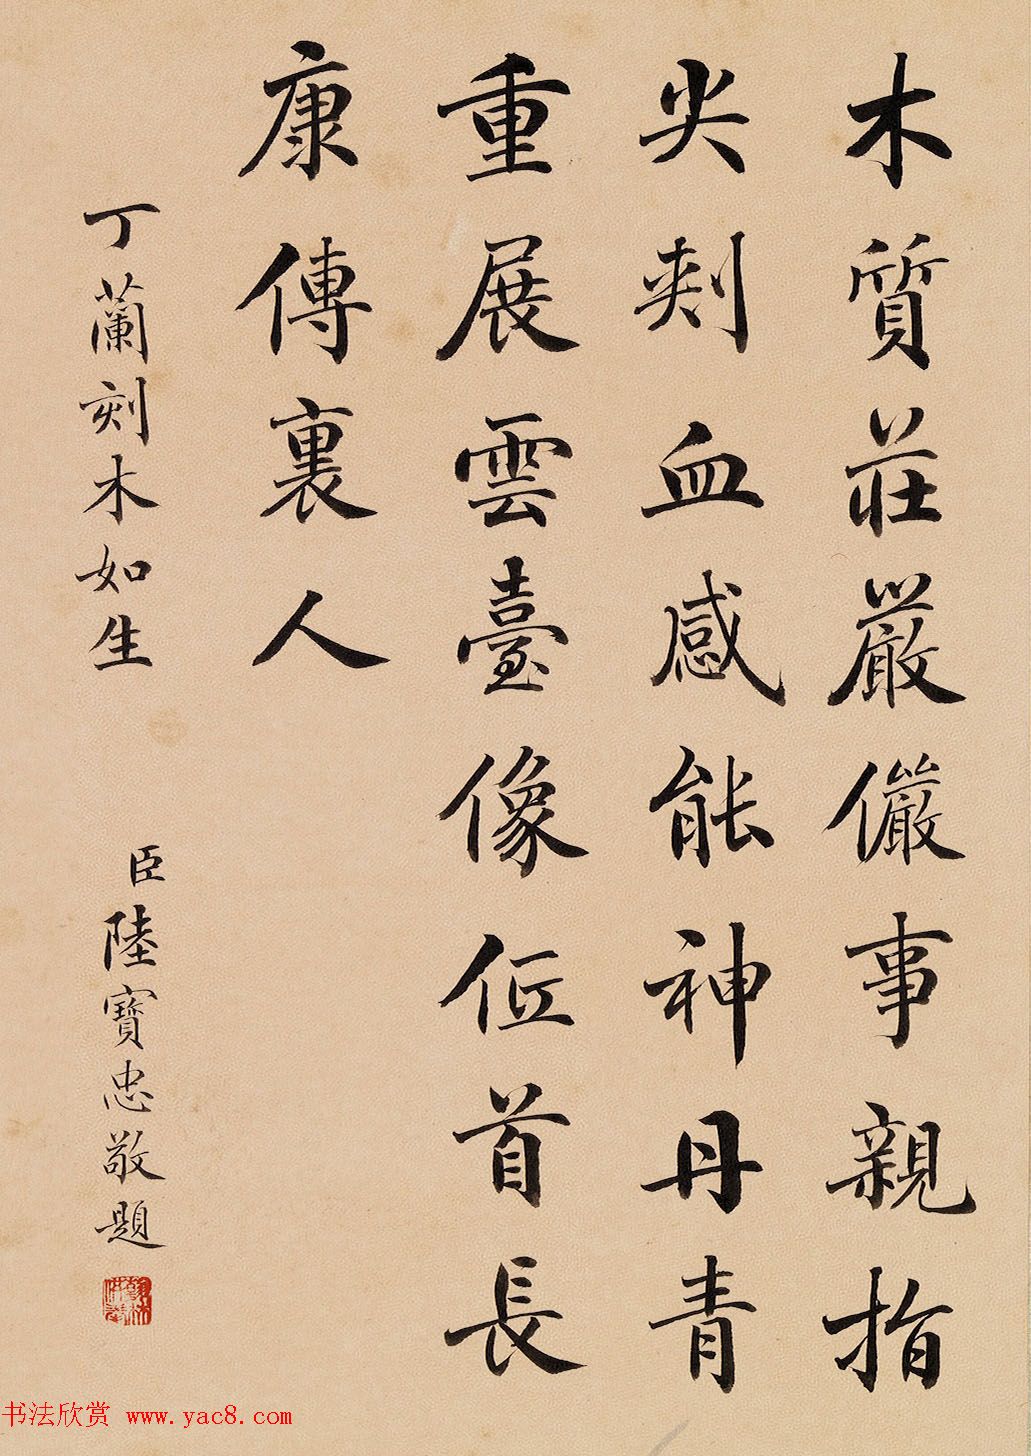 木質莊嚴儼事親指
尖刾血感能神丹青
重展雲臺像位首長
康傳裏人
丁蘭刻木如生
臣陸寶忠敬題
书法欣赏 www.yac8.com